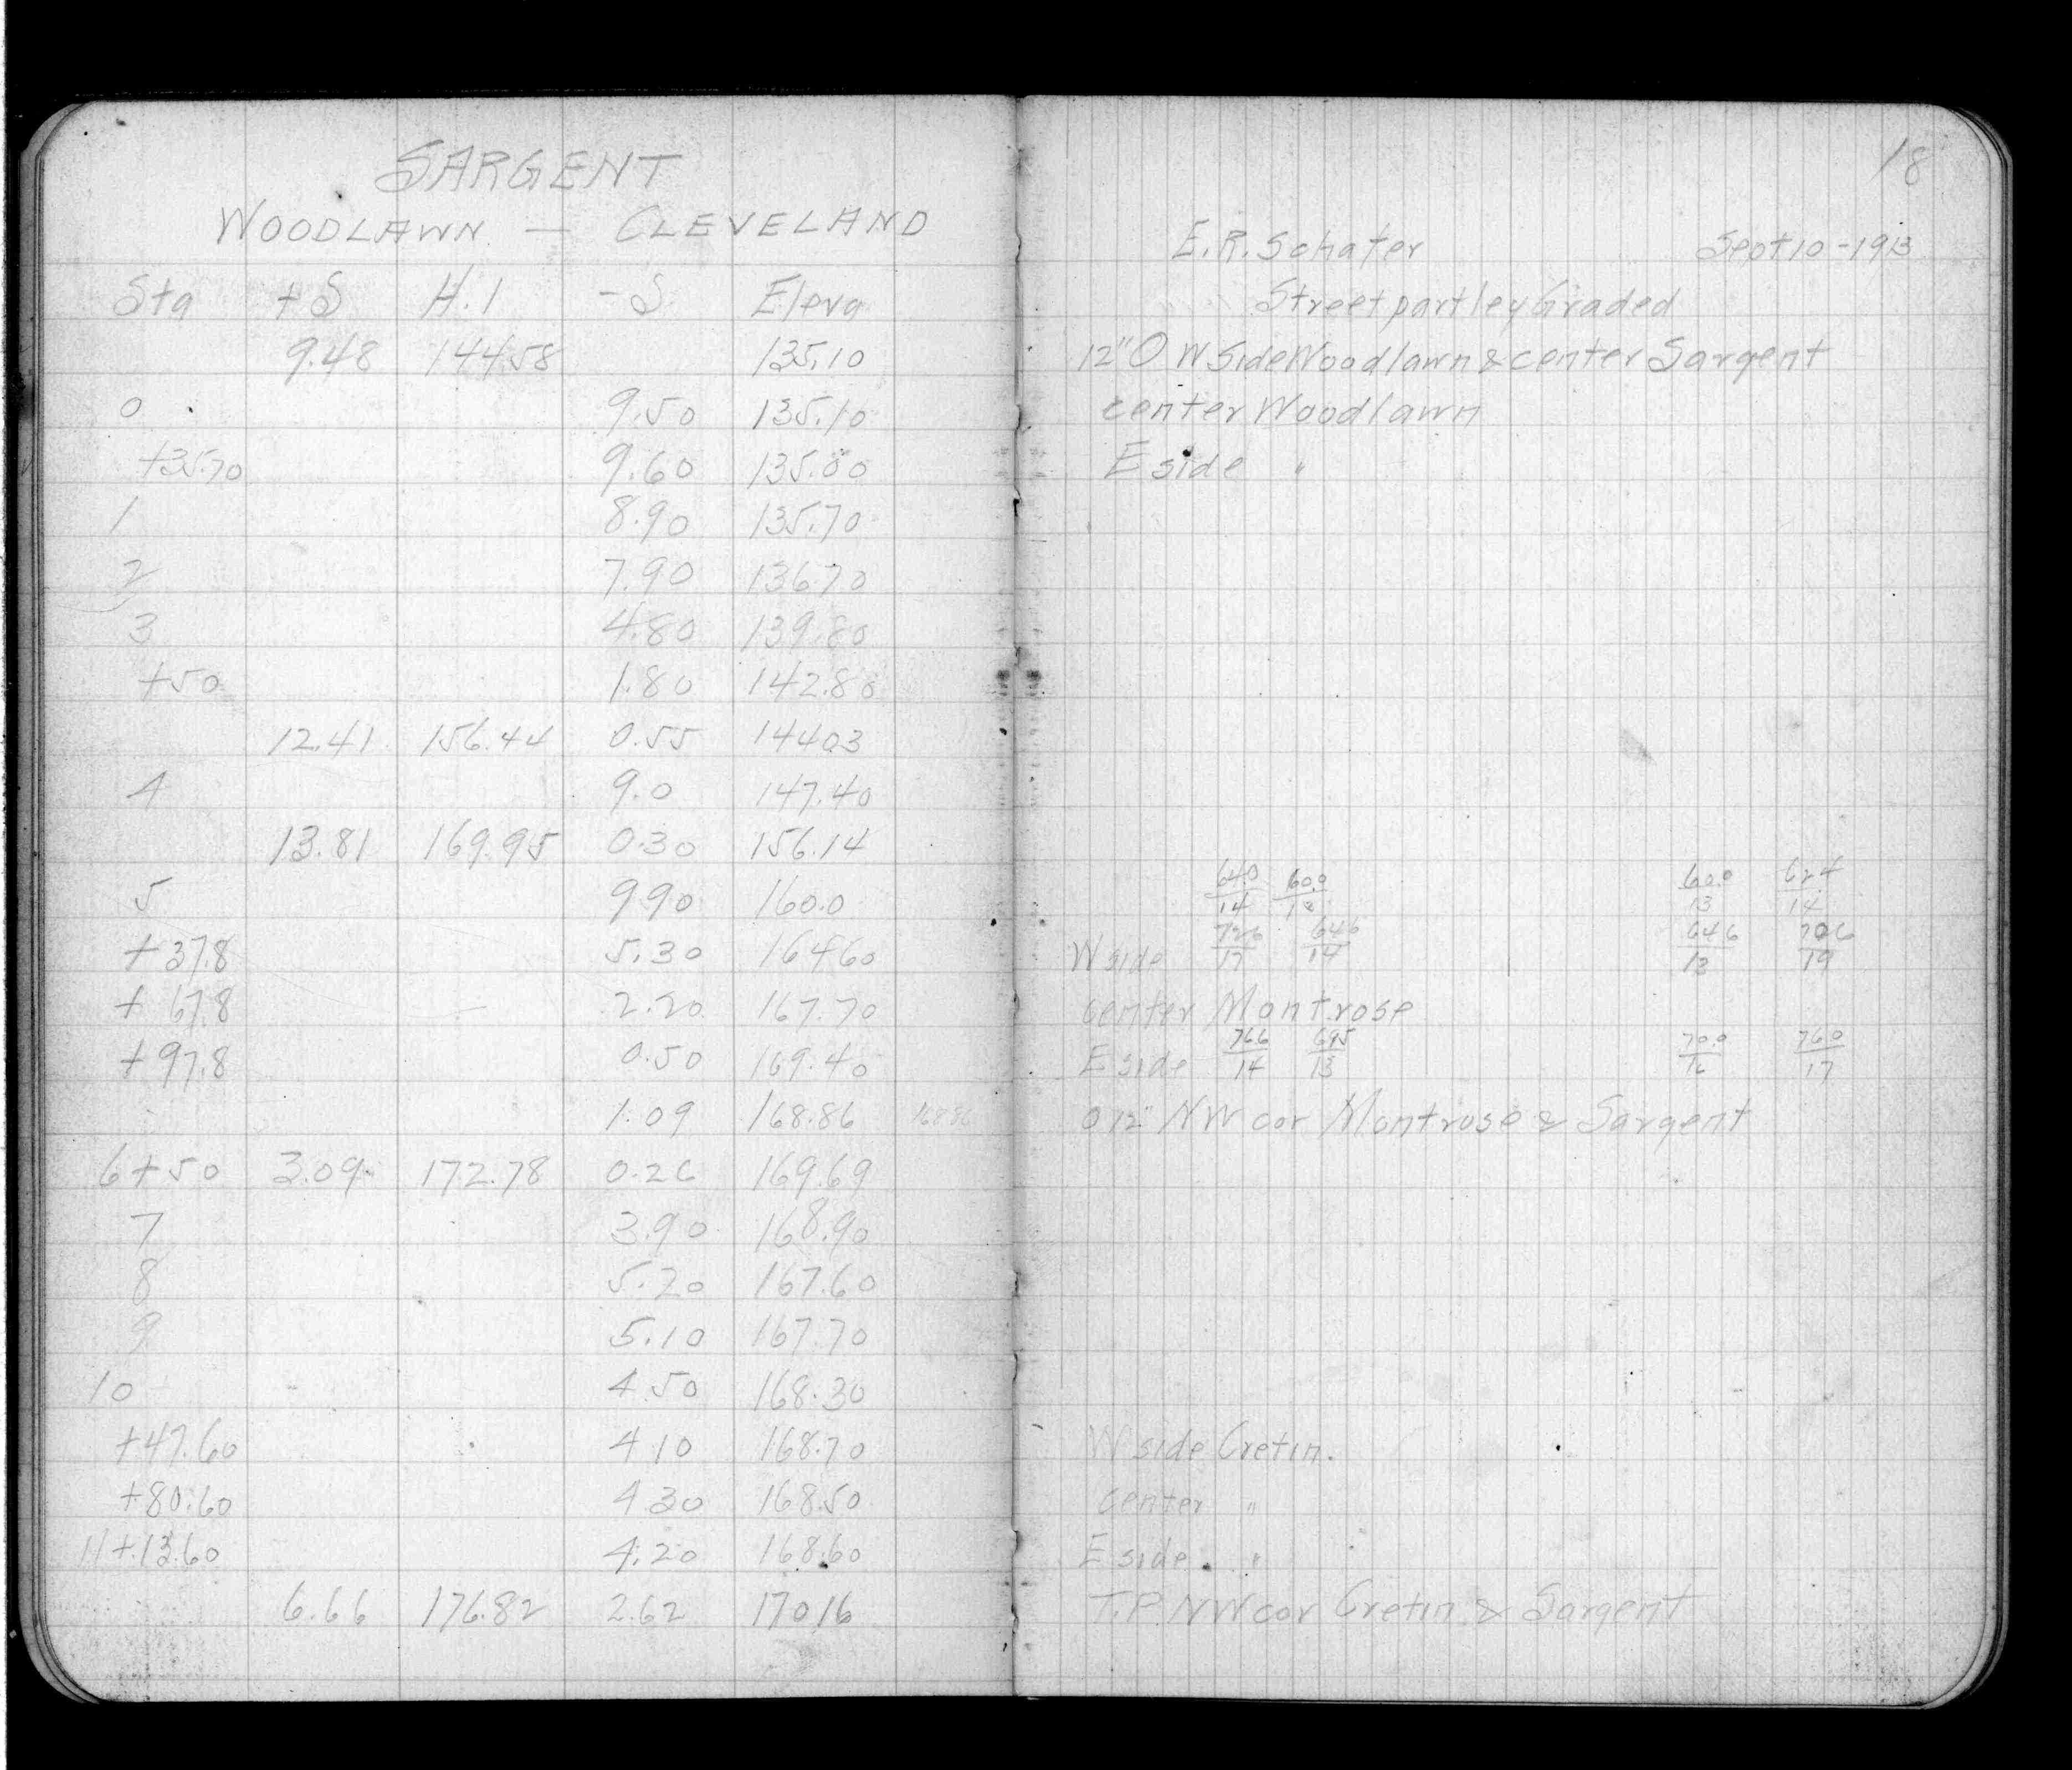 SARGENT
WOODLAWN — CLEVELAND
Sta +S H.I -S Eleva
9.48 144.58 135.10
0 9.50 135.10
+35.70 9.60 135.00
1 8.90 135.70
2 7.90 136.70
3 4.80 139.80
+50 1.80 142.80
12.41 156.44 0.55 14403
4 9.0 147.40
13.81 169.95 0.30 156.14
5 990 160.0
+37.8 5.30 16460
+67.8 2.20 167.70
+97.8 0.50 169.40
1.09 168.86 16886
6+50 3.09 172.78 0.26 169.69
7 3.90 168.90
8 5.20 167.60
9 5.10 167.70
10 4.50 168.30
+47.60 4.10 168.70
+80.60 4.30 168.50
11+13.60 4.20 168.60
6.66 176.82 2.62 17016
18
E.R. Schafer Sept 10-1913
Street partley Graded
12" O W Side Woodlawn & center Sargent
center Woodlawn
E side "
64.0/14 60.0/13 60.0/13 624/14
W side 726/17 646/14 646/13 706/19
center Montrose
E side 766/14 695/13 70.0/16 760/17
O 12" NW cor Montrose & Sargent
W side Cretin.
center "
E side "
T.P. NW cor Cretin & Sargent